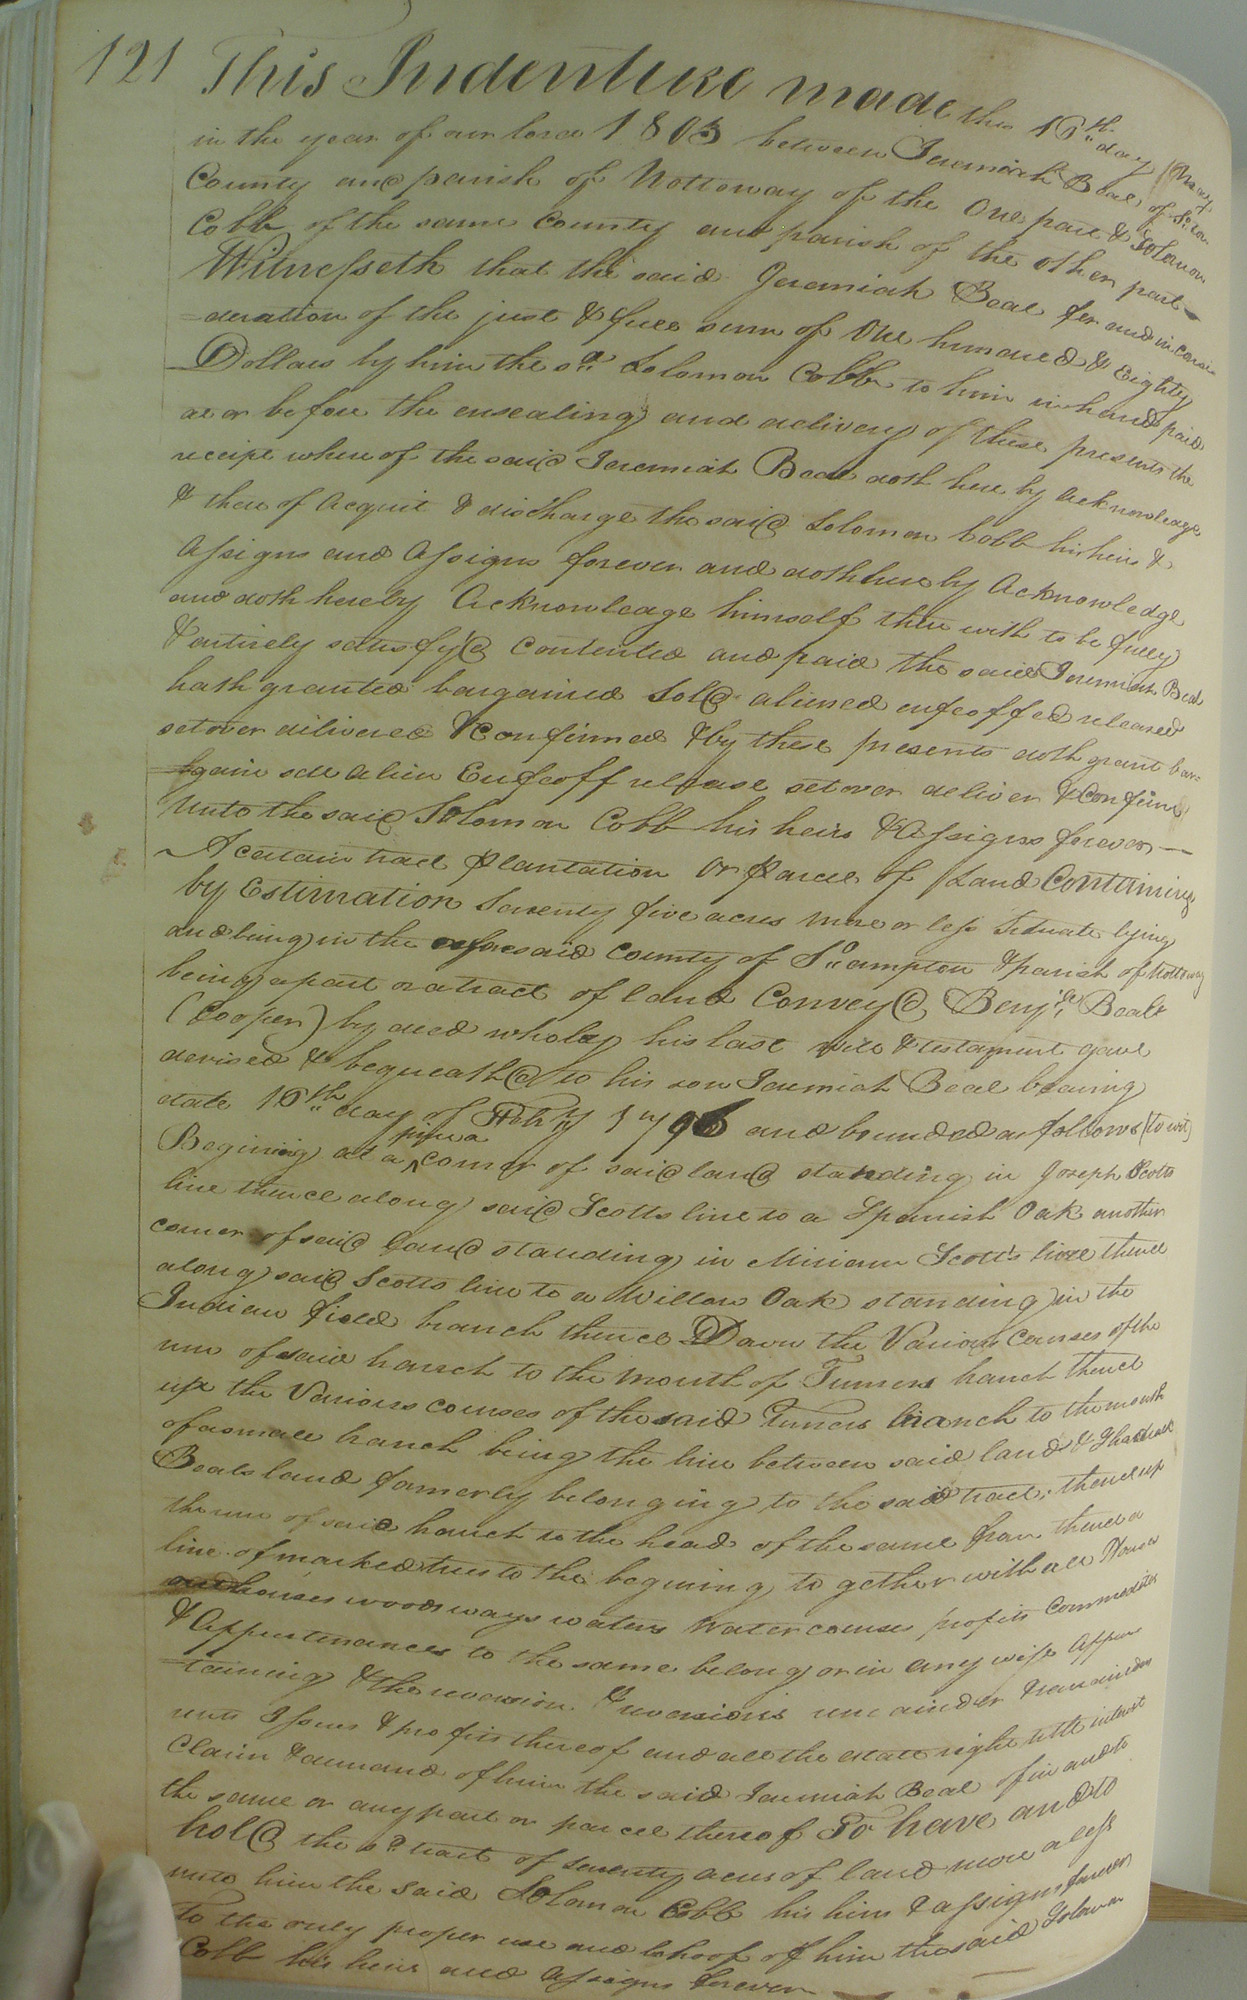 121 This Indenture made this 16th day May
in the year of our lord 1803 between Jeremiah Beal of So.ton
County and parish of Nottoway of the One part & Solomon
Cobb of the same County and parish of the other part
Witnesseth that the said Jeremiah Beal for and in consi
=deration of the just & full sum of One hundred & Eighty
Dollars by him the sd. Solomon Cobb to him in hand paid
at or before the ensealing and delivery of these presents the
receipt where of the said Jeremiah Beal doth here by acknowledge
& there of Acquit & discharge the said Solomon Cobb his heirs &
Assigns and Assigns forever and doth here by Acknowledge
and doth hereby Acknowledge himself there with to be fully
& entirely satisfy'd Contented and paid the said Jeremiah Beal
hath granted bargained Sold aliened enfeoffed released
set over delivered & Confirmed & by these presents doth grant bar=
=gain sell alien Enfeoff release set over deliver & Confirm
Unto the said Solomon Cobb his heirs & Assigns forever —
A certain tract Plantation Or Parcel of Land Containing
by Estimation Seventy five acres more or less Situate lying
and being in the aforesaid County of So.ampton & parish of Nottoway
being a part or a tract of land Convey'd Benjn. Beale
(Cooper) by deed who by his last will & testament gave
devised & bequeath'd to his son Jeremiah Beal bearing
date 16th day of Feby 1796 and bounded as follows (to wit)
Begining at a pine a corner of said land standing in Joseph Scotts
line thence along said Scotts line to a Spanish Oak another
corner of said land standing in Miriam Scott's line thence
along said Scotts line to a Willow Oak standing in the
Indian field branch thence Down the Various Courses of the
run of said branch to the mouth of Turners branch thence
up the Various courses of the said Turners branch to the mouth
of a small branch being the line between said land & Shadrack
Beals land formerly belonging to the said tract, thence up
the run of said branch to the head of the same from thence a
line of marked trees to the begining to gether with all Houses
outhouses woods ways waters Water courses profits Commodities
& Appurtenances to the same belong or in any wise Apper
=taining & the reversion & reversions remainder & remainders
rents Issues & profits thereof and all the estate right title interest
Claim & demand of him the said Jeremiah Beal of in and to
the same or any part or parcel thereof To have and to
hold the sd. tract of seventy acres of land more a less
unto him the said Solomon Cobb his hirs & assigns forever
To the only proper use and behoof of him the said Solomon
Cobb his heirs and Assigns forever